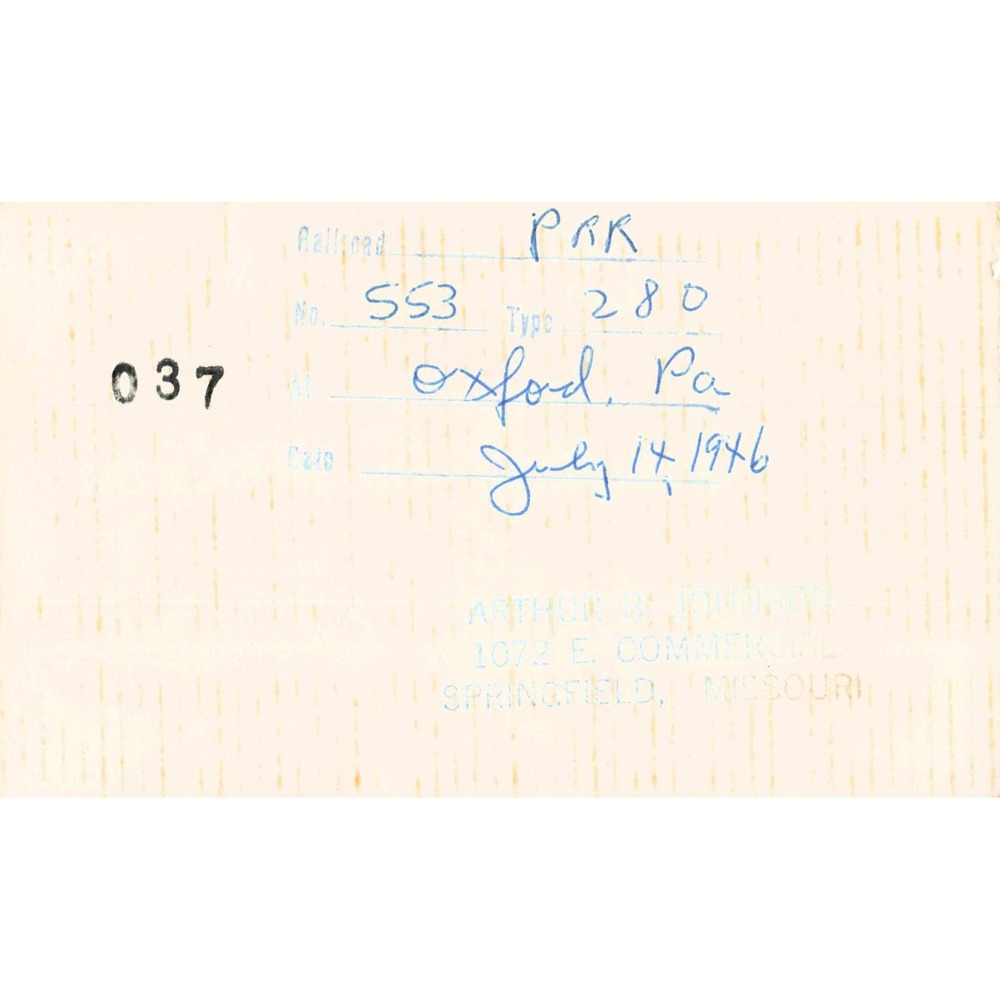 Railroad PRR
No. 553 Type 280
037
At Oxford, Pa
Date July 14, 1946
ARTHUR B. JOHNSON
1072 E. COMMERCIAL
SPRINGFIELD, MISSOURI